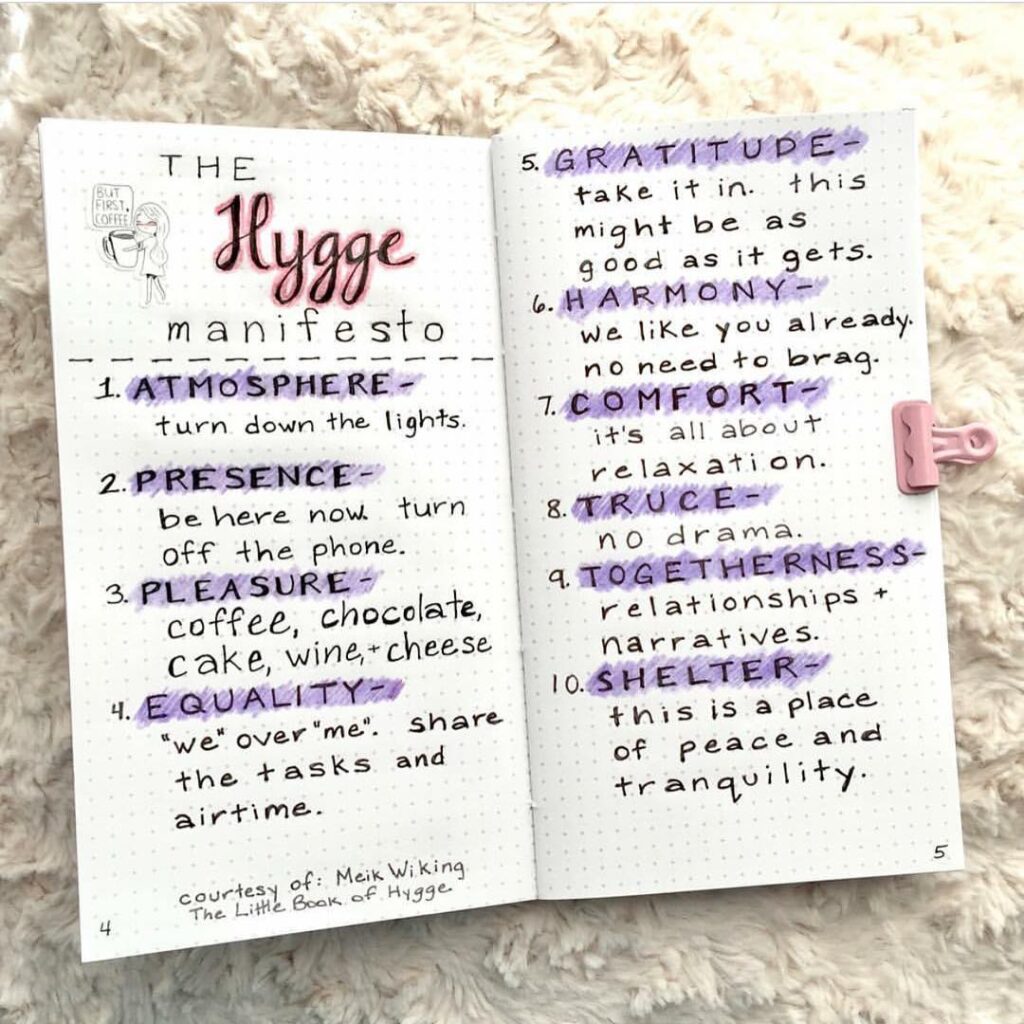 THE
BUT
FIRST,
COFFEE
Hygge
manifesto
1. ATMOSPHERE-
turn down the lights.
2. PRESENCE-
be here now. turn
off the phone.
3. PLEASURE-
coffee, chocolate,
cake, wine,+cheese
4. EQUALITY-
"we" over "me". share
the tasks and
airtime.
courtesy of: Meik Wiking
The Little Book of Hygge
4
5. GRATITUDE-
take it in. this
might be as
good as it gets.
6. HARMONY-
we like you already.
no need to brag.
7. COMFORT-
it's all about
relaxation.
8. TRUCE-
no drama.
9. TOGETHERNESS-
relationships +
narratives.
10. SHELTER-
this is a place
of peace and
tranquility.
5